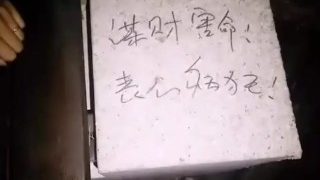 谋财害命!
丧心病狂!